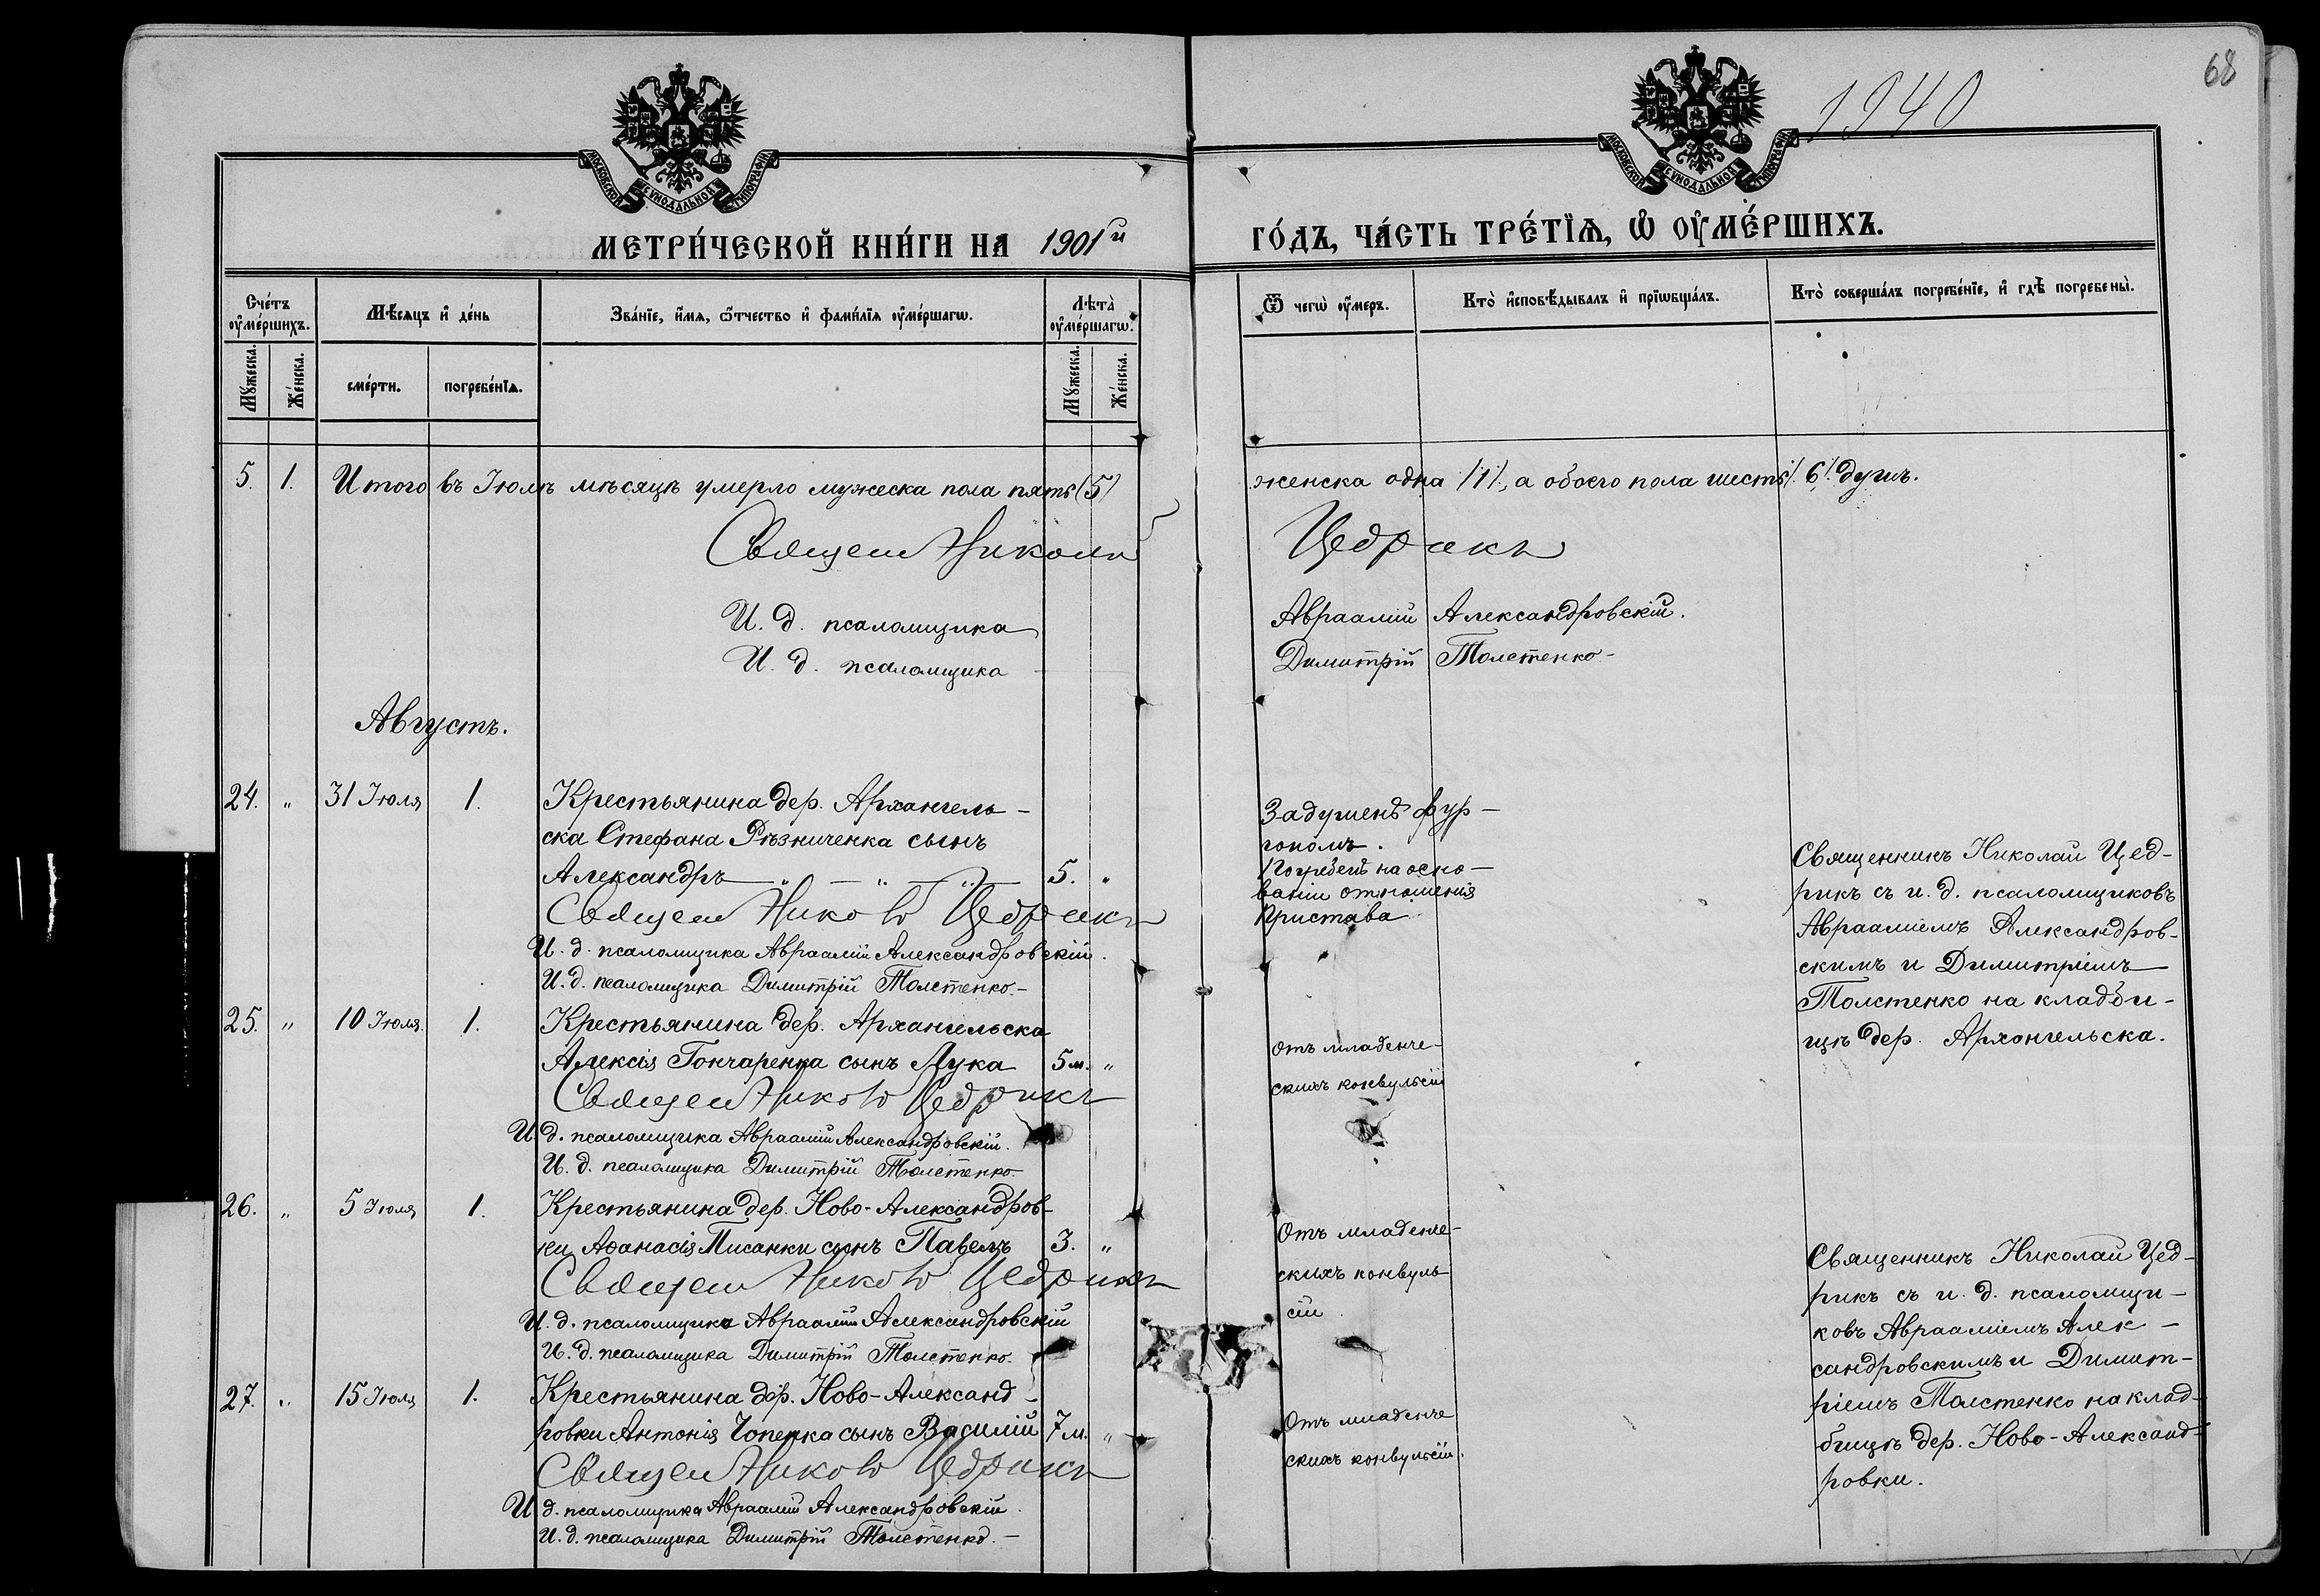 68
1940
МОСКОВСКОЙ СѴНОДАЛЬНОЙ ТИПОГРАФІИ
МОСКОВСКОЙ СѴНОДАЛЬНОЙ ТИПОГРАФІИ
МЕТРИ́ЧЕСКОЙ КНИ́ГИ НА 1901й
ГО́ДЪ, ЧА́СТЬ ТРЕ́ТЇѦ, Ѡ҆ ОУ҆МЕ́РШИХЪ.
Сче́тъ оу҆ме́ршихъ.
Мѣ́сяцъ и҆ де́нь
Зва́нїе, и҆́мя, ѻ҆́тчество и҆ фами́лїя оу҆ме́ршагѡ.
Лѣ́та оу҆ме́ршагѡ.
Ѿ чегѡ̀ оу҆́меръ.
Кто̀ и҆сповѣ́дывалъ и҆ прїѡбща́лъ.
Кто̀ соверша́лъ погребе́нїе, и҆ гдѣ̀ погребены̀.
Мꙋ́жеска.
Же́нска.
сме́рти.
погребе́нїѧ.
Мꙋ́жеска.
Же́нска.
5. 1. Итого въ Іюлѣ мѣсяцѣ умерло мужеска пола пять (5)
женска одна /1/, а обоего пола шесть /6/ душъ.
Священ Никола
Цедрикъ
И. д. псаломщика
Авраамій Александровскій.
И. д. псаломщика
Димитрій Толстенко
Августъ.
24. " 31 Іюля 1. Крестьянина дер. Архангель-
ска Стефана Рѣзниченка сынъ
Александръ 5. "
Священ Никол Цедрикъ
И. д. псаломщика Авраамій Александровскій.
И. д. псаломщика Димитрій Толстенко.
Задушенъ фур-
гономъ.
Погребенъ на осно-
ваніи отношенія
Пристава
Священникъ Николай Цед-
рикъ съ и. д. псаломщиковъ
Аврааміемъ Александров-
скимъ и Димитріемъ
Толстенко на кладби-
щѣ дер. Архангельска.
25. " 10 Іюля. 1. Крестьянина дер. Архангельска
Алексія Гончаренка сынъ Лука 5 м. "
Священ Никол Цедрикъ
И. д. псаломщика Авраамій Александровскій.
И. д. псаломщика Димитрій Толстенко.
Отъ младенче-
скихъ конвульсій
26. " 5 Іюля 1. Крестьянина дер. Ново-Александров-
ки Аѳанасія Писанки сынъ Павелъ 3. "
Священ Никол Цедрикъ
И. д. псаломщика Авраамій Александровскій
И. д. псаломщика Димитрій Толстенко.
Отъ младенче-
скихъ конвуль-
сій
Священникъ Николай Цед-
рикъ съ и. д. псаломщи-
ковъ Аврааміемъ Алек-
сандровскимъ и Димит-
ріемъ Толстенко на клад-
бищѣ дер. Ново-Александ-
ровки.
27. " 15 Іюля 1. Крестьянина дер. Ново-Александ-
ровки Антонія Чопенка сынъ Василій 7 м. "
Священ Никол Цедрикъ
И. д. псаломщика Авраамій Александровскій.
И. д. псаломщика Димитрій Толстенко.
Отъ младенче
скихъ конвульсій.